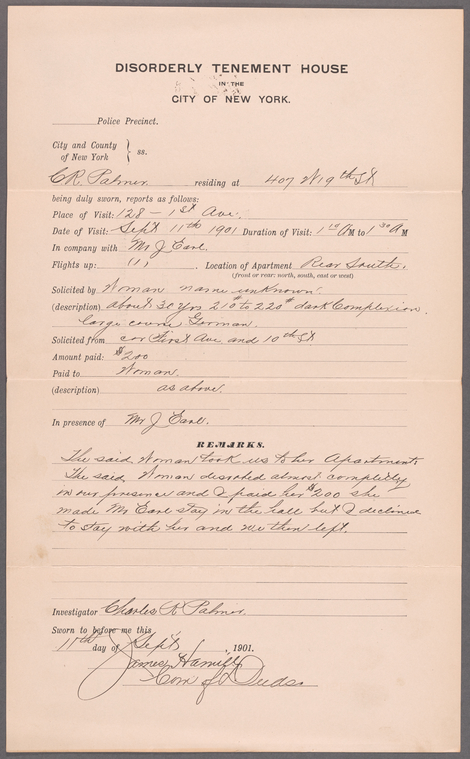 DISORDERLY TENEMENT HOUSE
IN THE
CITY OF NEW YORK.
Police Precinct.
City and County
of New York } ss.
C R. Palmer residing at 407 W 19th St
being duly sworn, reports as follows:
Place of Visit: 128 - 1st Ave.
Date of Visit: Sept 11th 1901 Duration of Visit: 1 10 AM to 1 30 AM
In company with Mr J Earl.
Flights up: (1) Location of Apartment Rear South.
(front or rear; north, south, east or west)
Solicited by Woman name unknown.
(description) about 30 yrs 210# to 220# dark Complexion.
large German.
Solicited from cor First Ave and 10th St
Amount paid: $200
Paid to Woman.
(description) as above.
In presence of Mr J Earl.
REMARKS.
The said Woman took us to her Apartments
The said Woman disrobed almost completly
in our presence and I paid her $200 she
made Mr Earl stay in the hall but I decline
to stay with her and we then left.
Investigator Charles R Palmer.
Sworn to before me this
11th day of Sept 1901.
James Hamill
Com of Deeds